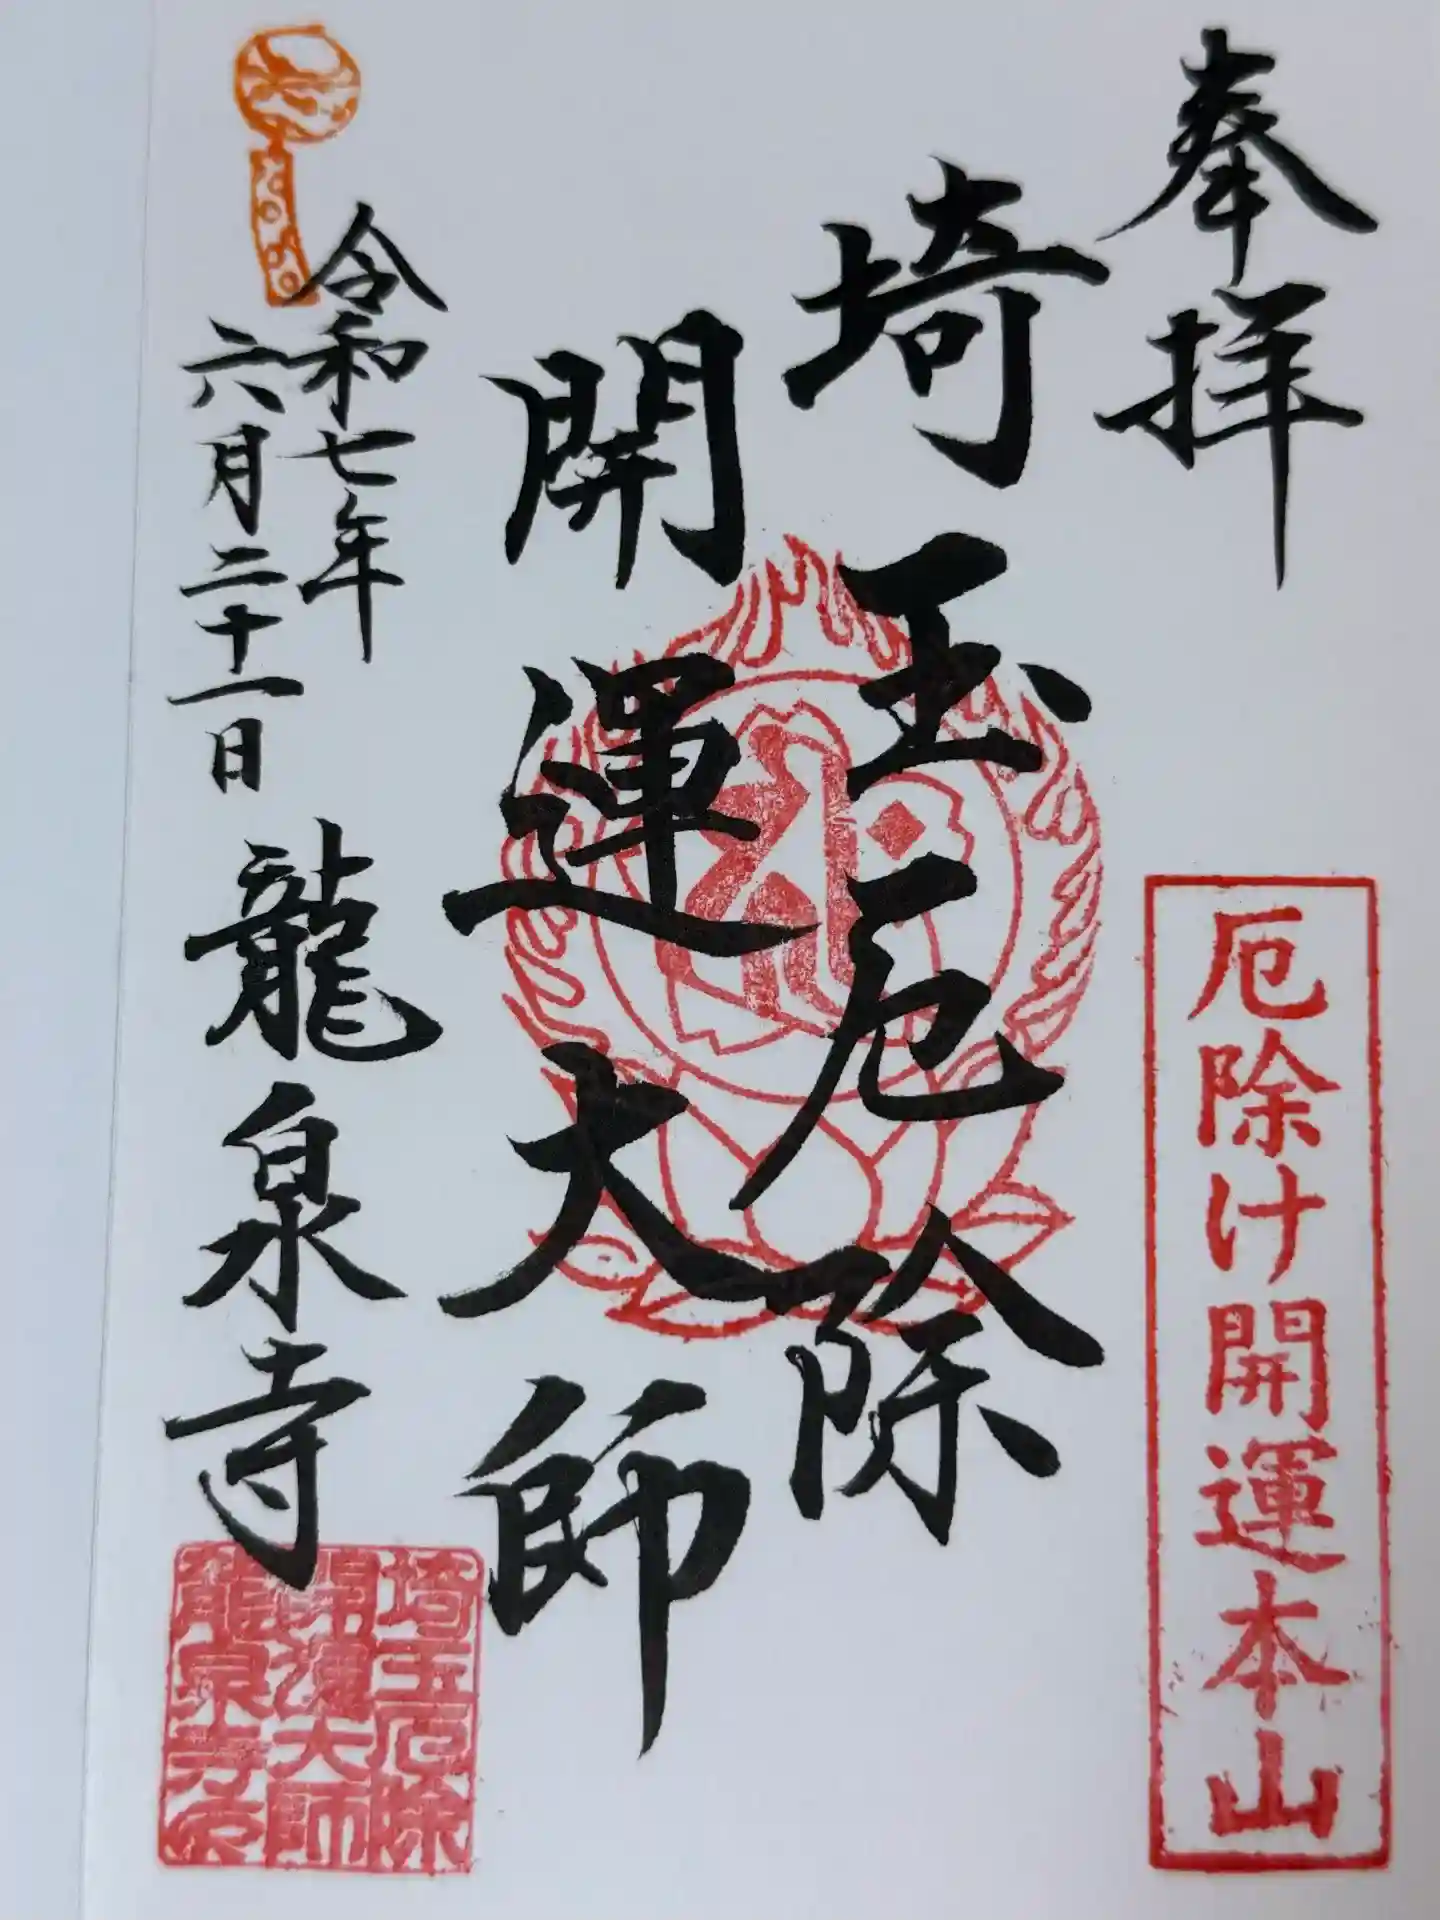 奉拝
厄除け開運本山
埼玉厄除
開運大師
令和七年
六月二十一日
龍泉寺
埼玉厄除
開運大師
龍泉寺印